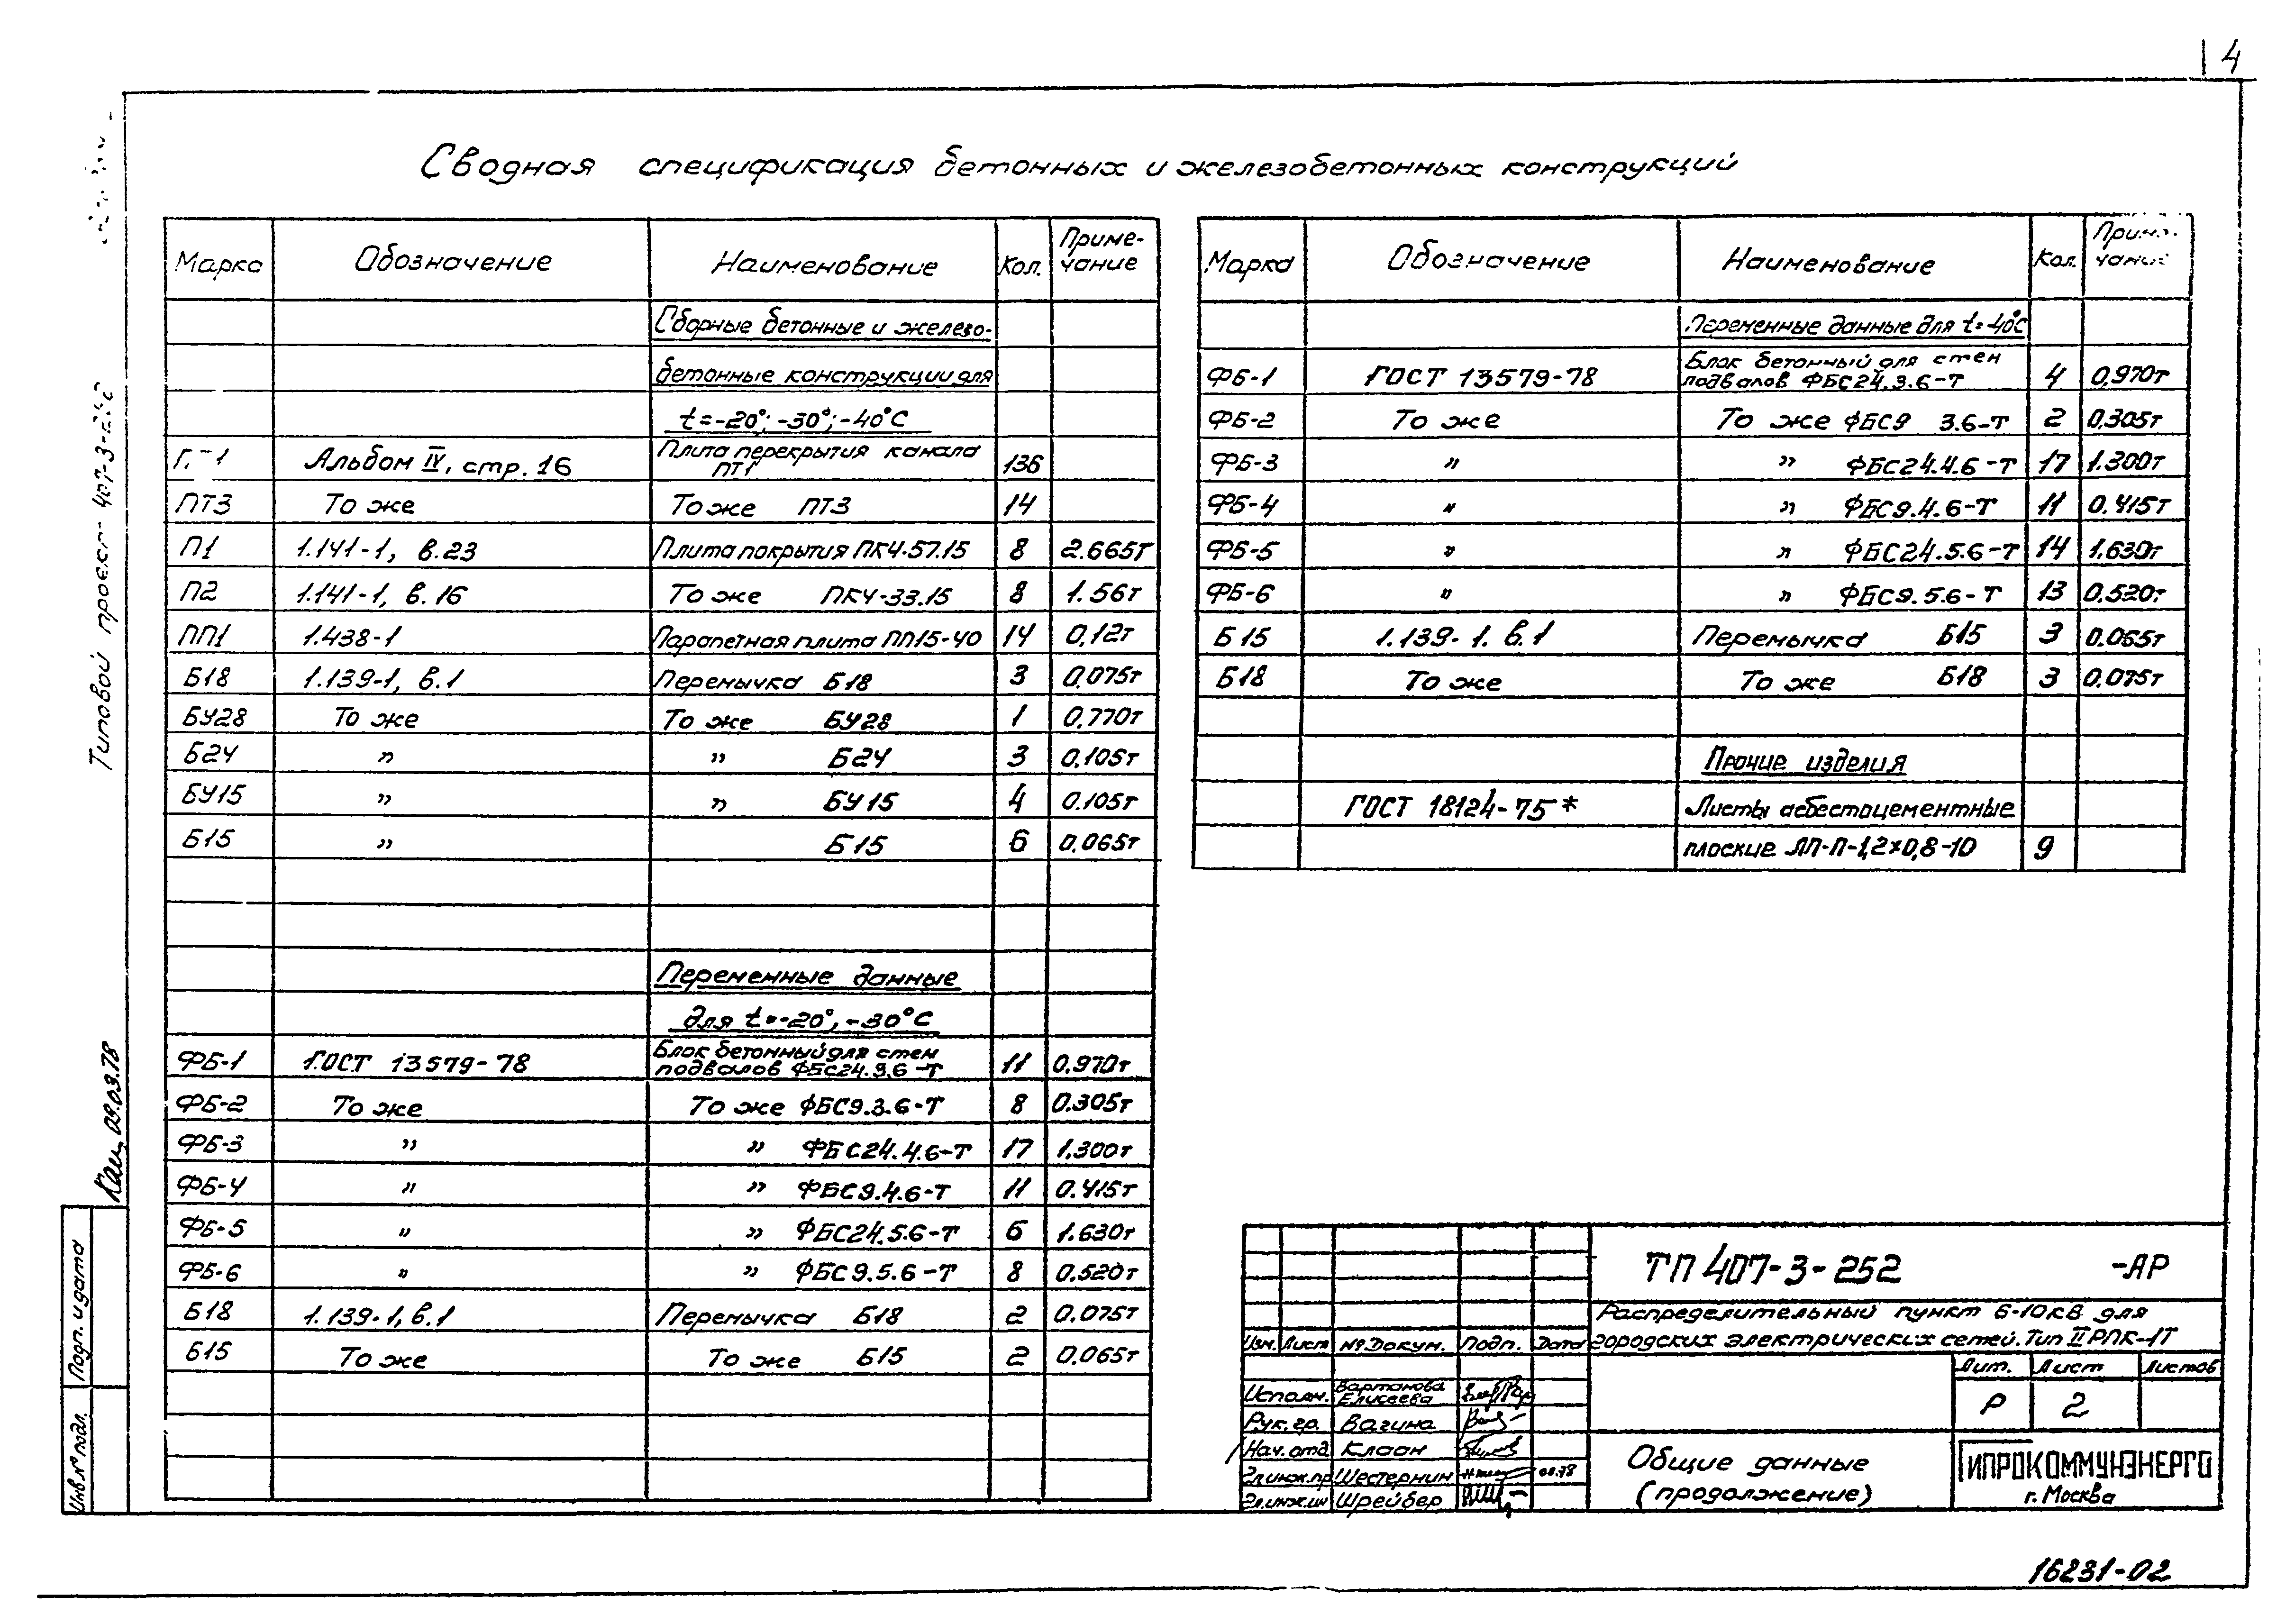 4
Сводная спецификация бетонных и железобетонных конструкций
Марка Обозначение Наименование Кол. Приме-
чание
Сборные бетонные и железо-
бетонные конструкции для
t=-20°; -30°; -40°С
Альбом IV, стр. 16 Плита перекрытия канала ПТ1 136
ПТ3 То же То же ПТ3 14
П1 1.141-1, в.23 Плита покрытия ПК4-57.15 8 2.665т
П2 1.141-1, в.16 То же ПК4-33.15 8 1.56т
ПП1 1.438-1 Парапетная плита ПП15-40 14 0,12т
Б18 1.139-1, в.1 Перемычка Б18 3 0,075т
БУ28 То же То же БУ28 1 0,770т
Б24 " " Б24 3 0,105т
БУ15 " " БУ15 4 0.105т
Б15 " Б15 6 0,065т
Переменные данные
для t=-20°, -30°С
ФБ-1 ГОСТ 13579-78 Блок бетонный для стен
подвалов ФБС24.3.6-Т 11 0,970т
ФБ-2 То же То же ФБС9.3.6-Т 8 0.305т
ФБ-3 " " ФБС24.4.6-Т 17 1.300т
ФБ-4 " " ФБС9.4.6-Т 11 0.415т
ФБ-5 " " ФБС24.5.6-Т 6 1.630т
ФБ-6 " " ФБС9.5.6-Т 8 0.520т
Б18 1.139-1, в.1 Перемычка Б18 2 0.075т
Б15 То же То же Б15 2 0.065т
Марка Обозначение Наименование Кол. Приме-
чание
Переменные данные для t=-40°С
ФБ-1 ГОСТ 13579-78 Блок бетонный для стен
подвалов ФБС24.3.6-Т 4 0,970т
ФБ-2 То же То же ФБС9 3.6-Т 2 0,305т
ФБ-3 " " ФБС24.4.6-Т 17 1.300т
ФБ-4 " " ФБС9.4.6-Т 11 0.415т
ФБ-5 " " ФБС24.5.6-Т 14 1.630т
ФБ-6 " " ФБС9.5.6-Т 13 0.520т
Б15 1.139-1. в.1 Перемычка Б15 3 0.065т
Б18 То же То же Б18 3 0.075т
Прочие изделия
ГОСТ 18124-75* Листы асбестоцементные
плоские ЛП-П-1,2×0,8-10 9
Типовой проект 407-3-252
Кац 09.03.78
Подп. и дата
Инв.№ подл.
ТП 407-3-252 -АР
Распределительный пункт 6-10кВ для
городских электрических сетей. Тип II РПК-1Т
Изм. Лист № Докум. Подп. Дата
Лит. Лист Листов
Р 2
Исполн. Вартанова
Елисеева
Рук. гр. Вагина
Нач. отд. Клаан
Гл.инж.пр Шестернин
Гл.инж.ин Шрейбер
Общие данные
(продолжение)
ГИПРОКОММУНЭНЕРГО
г. Москва
16231-02